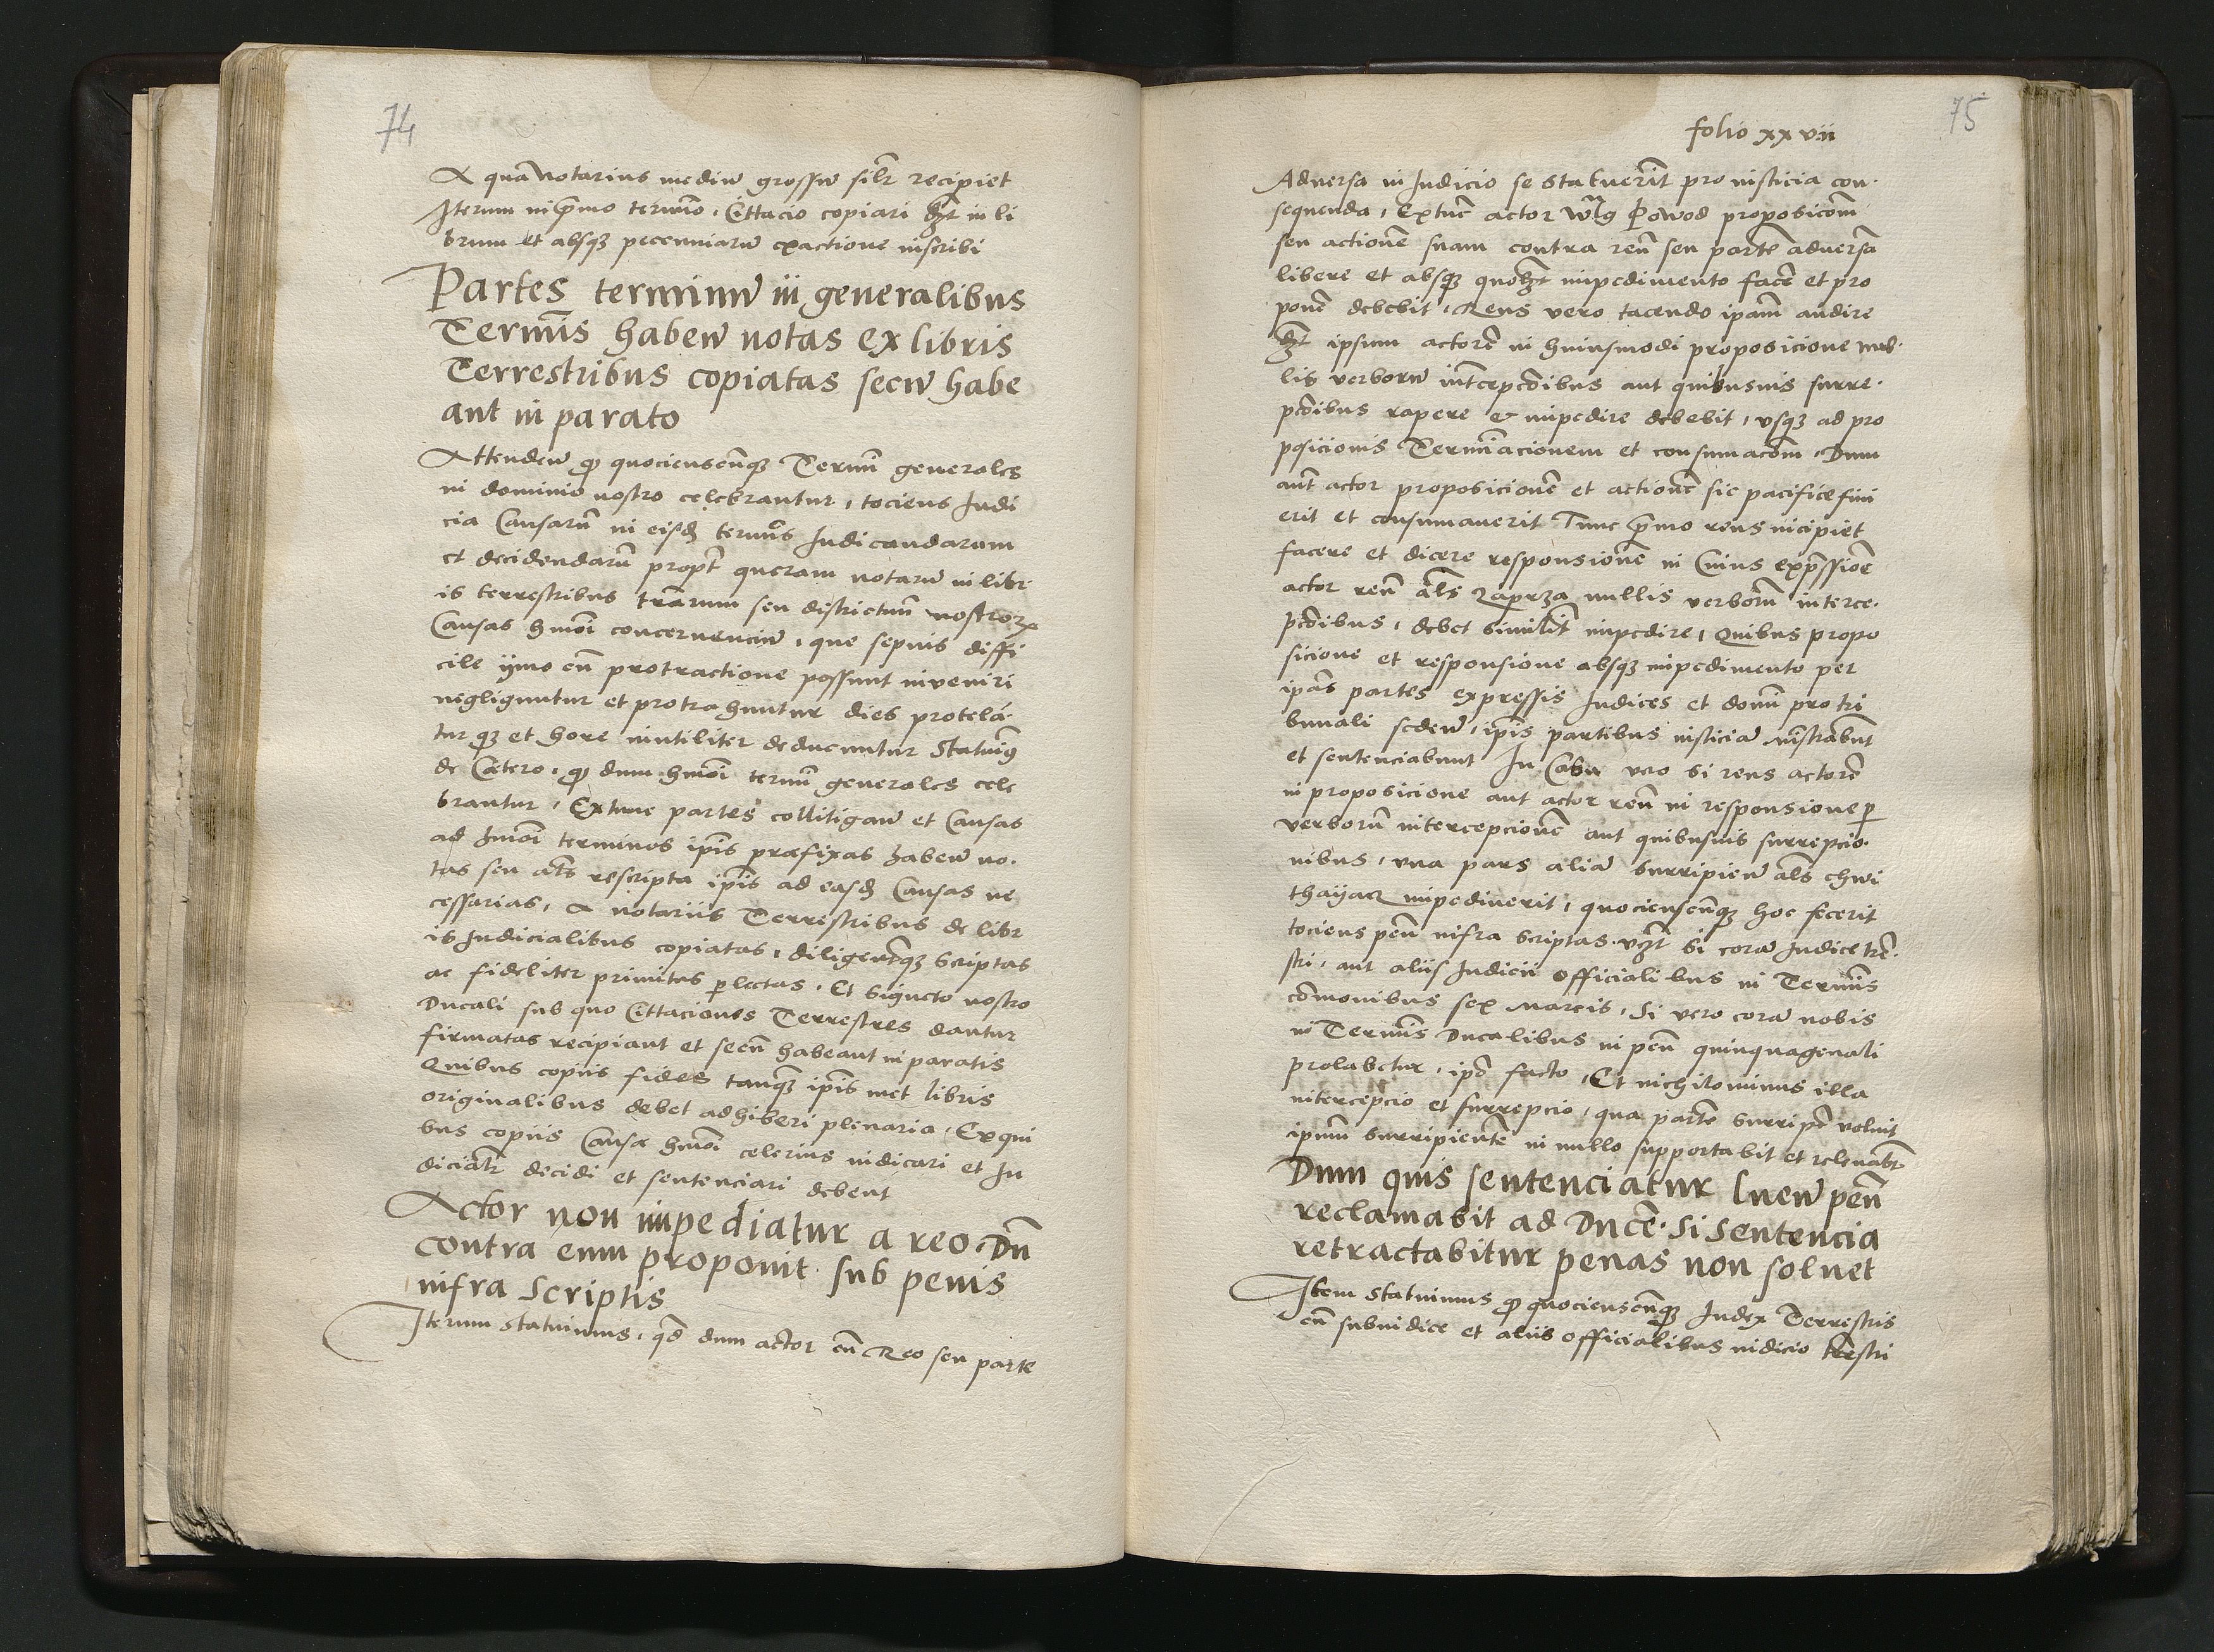 74
A qua Notarius mediu grossu silr recipiet
Iterum in pmo termino. Cittacio copiari hz in li
brum et absqz peccuniaru exactione inscribi
Partes terminu in generalibus
Termis habeñ notas ex libris
Terrestribus copiatas secu habe
ant in parato
Attendeñ qz quociensecuqz Termi generales
in dominio nostro celebrantur, tociens Iudi
cia Causaru in eisd termis Iudicandarum
et decidendaru propt queram notaru in libr
is terrestribus trarum seu districtuu nostroz
Causas hmoi concernenciu, que sepius diffi
cile ymo cu protractione possunt inveniri
negliguntur et protrahuntur dies protela-
tur qz et hore inutiliter deducuntur Statuimg
de Cetero, qz dum hmoi termi generales cele
brantur, Extunc partes collitigañ et Causas
ad hmoi terminos ipis praefixas habeñ no-
tas seu als rescripta ipis ad easd Causas ne
cessarias, A notariis Terrestribus de libr
is Iudicialibus copiatas, diligenterqz scriptas
ac fideliter primitus plectas. Et signeto nostro
Ducali sub quo Cittaciones Terrestres dantur
firmatas recipiant et secu habeant in paratis
Quibus copiis fides tanqz ipis met libris
originalibus debet adhiberi plenaria, Ex qui
bus copiis Causae hmoi celerius iudicari et Iu
dicialr decidi et sentenciari debent
Actor non impediatur a reo. Dū
contra eum proponit. sub penis
infra Scriptis
Iterum statuimus, qd dum actor cū Reo seu parte
folio xxvii
75
Adversa in Iudicio se statuerit pro iusticia con-
sequenda, Extuc actor wlg Powod proposicom
seu actionē suam contra reū seu partē adversā
libere et absqz quolzt impedimento facē et pro
ponē debebit, Reus vero tacendo ipam audire
hzt ipsum actorē in huiusmodi proposicione nul-
lis verboru intcepcoibus aut quibusuis surre-
pcoibus rapere et impedire debebit, usqz ad pro
posicionis Terminacionem et consumacom, Dum
aut actor proposicionē et actionē sic pacifice fini
erit et consumaverit Tunc pmo reus incipiet
facere et dicere responsionē in Cuius expssioē
actor reū als Zaprza nullis verborū interce-
pcoibus, debet similit impedire, Quibus propo
sicione et responsione absqz impedimento per
ipas partes expressis Iudices et domi pro tri
bunali sedeñ, ipis partibus iusticia mistrabut
et sentenciabunt In Casu vero si reus actorē
in proposicione aut actor reū in responsione p
verborū intercepcionē aut quibusuis surrepcio-
nibus, una pars alia surripieñ als chwi
thayacz impediverit, quociensecuqz hoc fecerit
tociens penā infra scriptas. vzt si cora Iudice tre-
stri, aut aliis Iudicii officialibus in Termis
comonibus sex marcis, Si vero cora nobis
in Termis Ducalibus in penā quinquagenali
prolabetur, ipo facto, Et nichilominus illa
intercepcio et surrepcio, qua partē surripē voluit
ipmm surripientē in nullo supportabit et relevabt
Dum quis sentenciatur lueñ penā
reclamabit ad Ducē. Si sentencia
retractabitur penas non soluet
Item statuimus qz quociensecuqz Iudex Terrestris
cū subiudice et aliis officialibus iudicio trestri